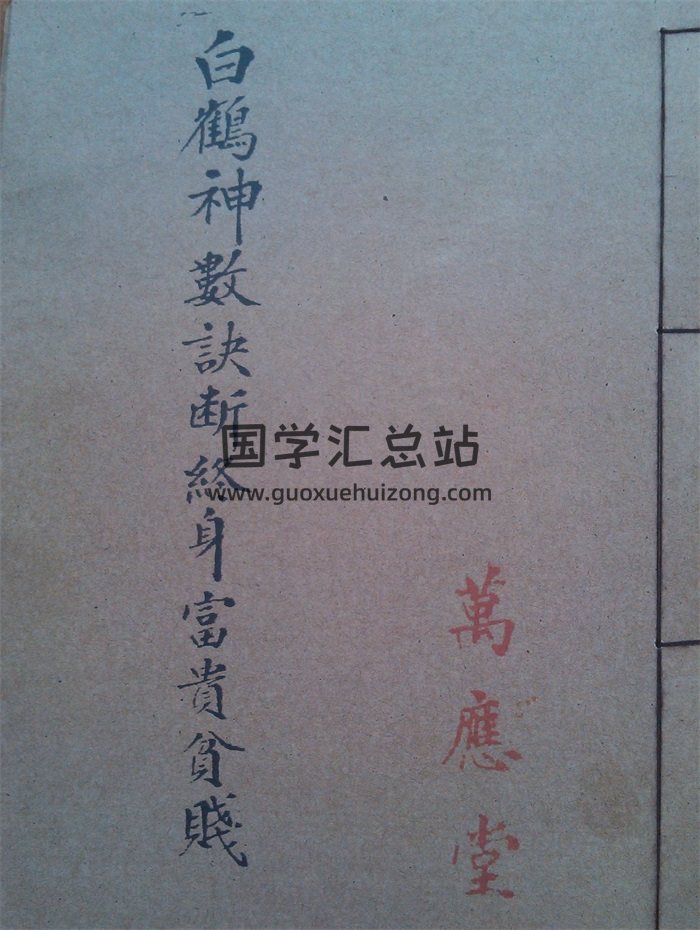 萬應堂
白鶴神數訣断終身富貴貧賤
国学汇总站
www.guoxuehuizong.com